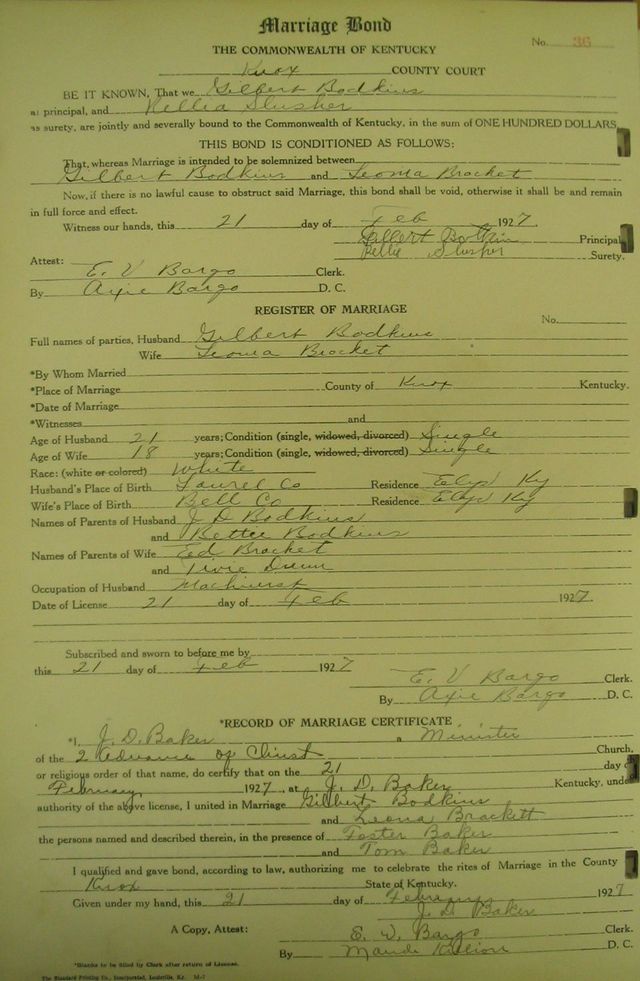 Marriage Bond
No. 36
THE COMMONWEALTH OF KENTUCKY
Knox COUNTY COURT
BE IT KNOWN, That we Gilbert Bodkins
as principal, and Rellia Slusher
as surety, are jointly and severally bound to the Commonwealth of Kentucky, in the sum of ONE HUNDRED DOLLARS.
THIS BOND IS CONDITIONED AS FOLLOWS:
That, whereas Marriage is intended to be solemnized between
Gilbert Bodkins and Leoma Brocket
Now, if there is no lawful cause to obstruct said Marriage, this bond shall be void, otherwise it shall be and remain
in full force and effect.
Witness our hands, this 21 day of Feb 1927
Gilbert Botkin Principal
Rellie Slusher Surety.
Attest:
E. V Bargo Clerk.
By Axie Bargo D. C.
REGISTER OF MARRIAGE
No.
Full names of parties, Husband Gilbert Bodkins
Wife Leoma Brocket
*By Whom Married
*Place of Marriage County of Knox Kentucky.
*Date of Marriage
*Witnesses and
Age of Husband 21 years; Condition (single, widowed, divorced) Single
Age of Wife 18 years; Condition (single, widowed, divorced) Single
Race: (white or colored) White
Husband's Place of Birth Laurel Co Residence Elys Ky
Wife's Place of Birth Bell Co Residence Elys Ky
Names of Parents of Husband J D Bodkins
and Bettie Bodkins
Names of Parents of Wife Ed Brocket
and
Occupation of Husband Machinest
Date of License 21 day of Feb 1927.
Subscribed and sworn to before me by
this 21 day of Feb 1927
E. V Bargo Clerk.
By Axie Bargo D. C.
*RECORD OF MARRIAGE CERTIFICATE
*I, J. D. Baker a Minister
of the 2 Advance of Christ Church,
or religious order of that name, do certify that on the 21 day of
February 1927, at J. D. Baker Kentucky, under
authority of the above license, I united in Marriage Gilbert Bodkins
and Leona Brackett
the persons named and described therein, in the presence of Foster Baker
and Tom Baker
I qualified and gave bond, according to law, authorizing me to celebrate the rites of Marriage in the County
Knox State of Kentucky.
Given under my hand, this 21 day of February 1927
J. D. Baker
A Copy, Attest: E. V. Bargo Clerk.
By Maude D. C.
*Blanks to be filled by Clerk after return of License.
The Standard Printing Co., Incorporated, Louisville, Ky.